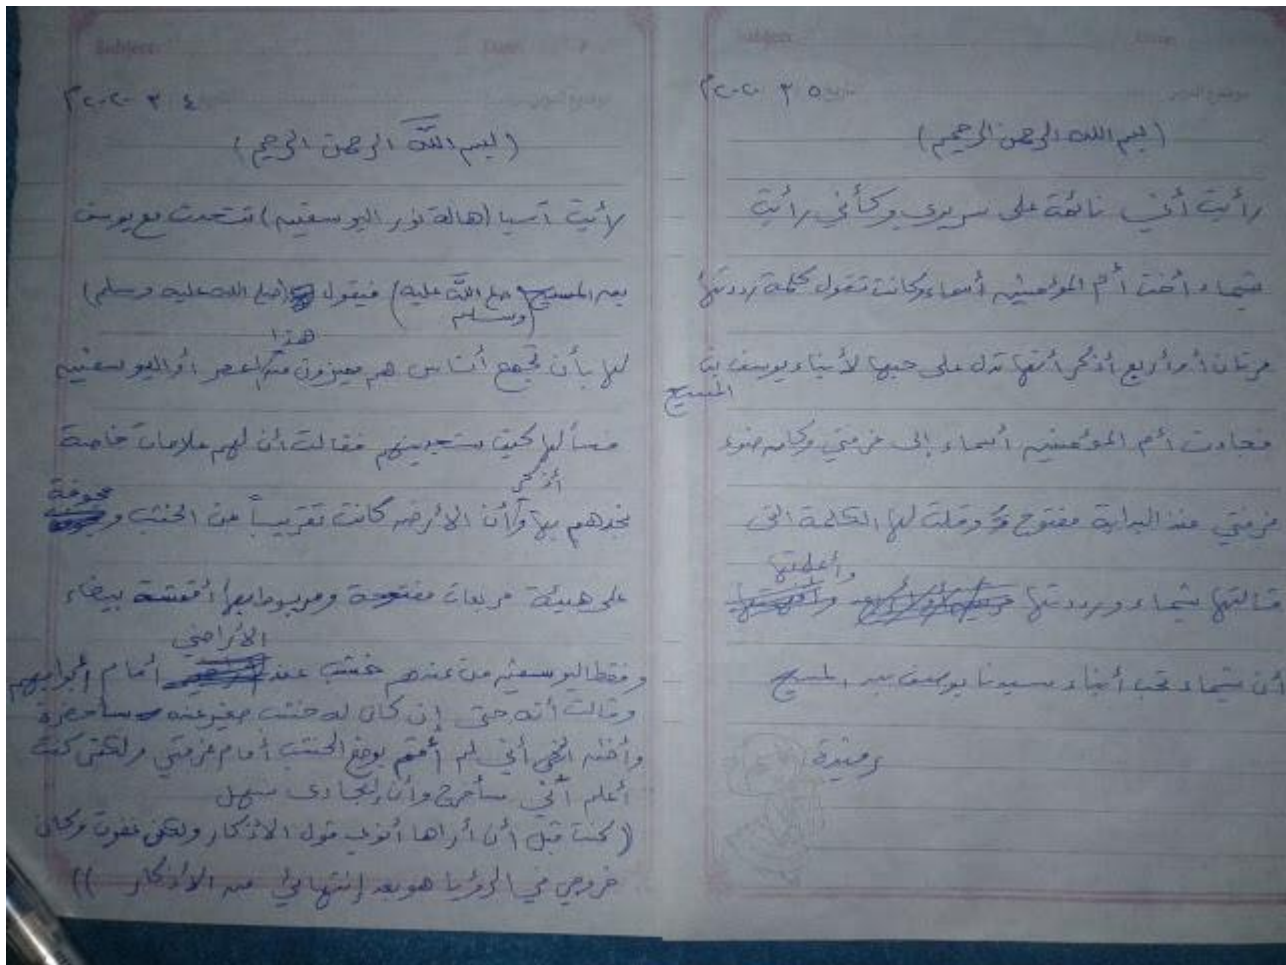 Subject:
٥ ٣ ٢٠٢٠م
(بسم الله الرحمن الرحيم)
رأيت أني نائمة على سريري وكأني رأيت
شيماء أخت أم المؤمنين أسماء وكانت تقول كلمة رددتها
مرتان أو أربع أذكر أنها تدل على حبها لأبناء يوسف بن
المسيح
فجاءت أم المؤمنين أسماء إلى غرفتي وكان ضوء
غرفتي منذ البداية مفتوح وقلت لها الكلمة التي
وأعلمتها
قالتها شيماء ورددتها
أن شيماء تحب أبناء سيدنا يوسف بن المسيح
رميزة
Subject:
٤ ٣ ٢٠٢٠م
(بسم الله الرحمن الرحيم)
رأيت آسيا (هالة نور اليوسفيين) تتحدث مع يوسف
بن المسيح (صلى الله عليه وسلم) فيقول (صلى الله عليه وسلم)
هذا
لها بأن تجمع أناس هم مميزون العصر أو اليوسفيين
فسألها كيف ستجدينهم فقالت أن لهم علامات خاصة
أذكر
نجدهم بها وأن الأرض كانت تقريباً من الخشب و مجوفة
على هيئة مربعات مفتوحة ومربوط بها أقمشة بيضاء
الأراضي
وفقط اليوسفيين من عندهم خشب عند أمام أبوابهم
وقالت أنه حتى إن كان له خشب صغير عنده سأحضره
وأظن أني لم أقم بوضع الخشب أمام غرفتي ولكني كنت
أعلم أني سأخرج وأن إيجادي سهل
(كنت قبل أن أراها أنوي قول الأذكار ولكن غفوت وكان
خروجي في الرؤيا هو بعد إنتهائي من الأذكار))